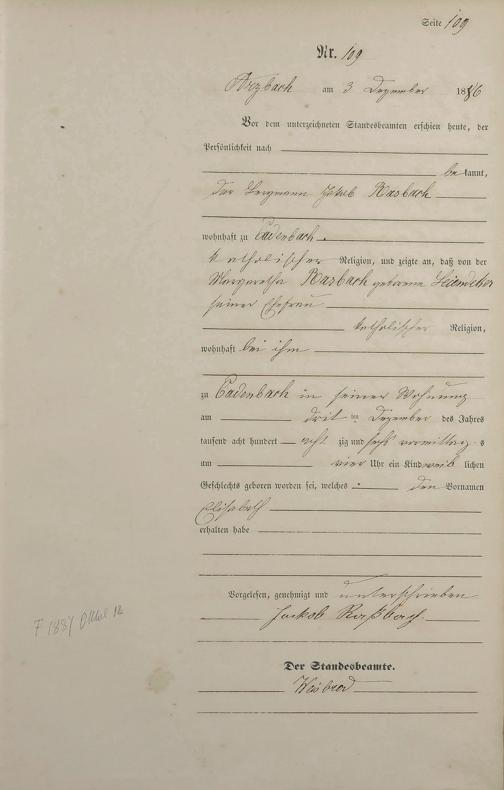 Seite 109
Nr. 109
Arzbach am 3 Dezember 1886
Vor dem unterzeichneten Standesbeamten erschien heute, der
Persönlichkeit nach
bekannt,
der Bergmann Jakob Rasbach
wohnhaft zu Cadenbach.
katholischer Religion, und zeigte an, daß von der
Margaretha Rasbach geborene
seiner Ehefrau
katholischer Religion,
wohnhaft bei ihm
zu Cadenbach in seiner Wohnung
am dritten Dezember des Jahres
tausend acht hundert achtzig und sechs vormittags
um vier Uhr ein Kind weiblichen
Geschlechts geboren worden sei, welches den Vornamen
Elisabeth
erhalten habe
Vorgelesen, genehmigt und unterschrieben
Jackob Raßbach.
Der Standesbeamte.
F 1887